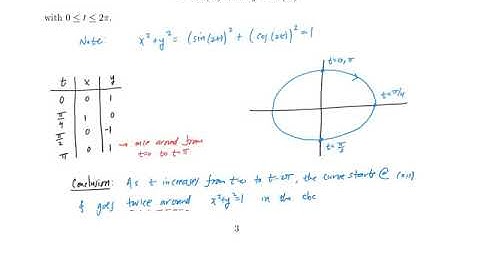 with 0 ≤ t ≤ 2π.
Note: x²+y² = (sin(2t))² + (cos(2t))² = 1
t=0,π
t x y
0 0 1
t=π/4
π/4 1 0
π/2 0 -1
π 0 1 → once around from
t=0 to t=π
t=π/2
Conclusion: As t increases from t=0 to t=2π, the curve starts @ (0,1)
& goes twice around x²+y²=1 in the
3